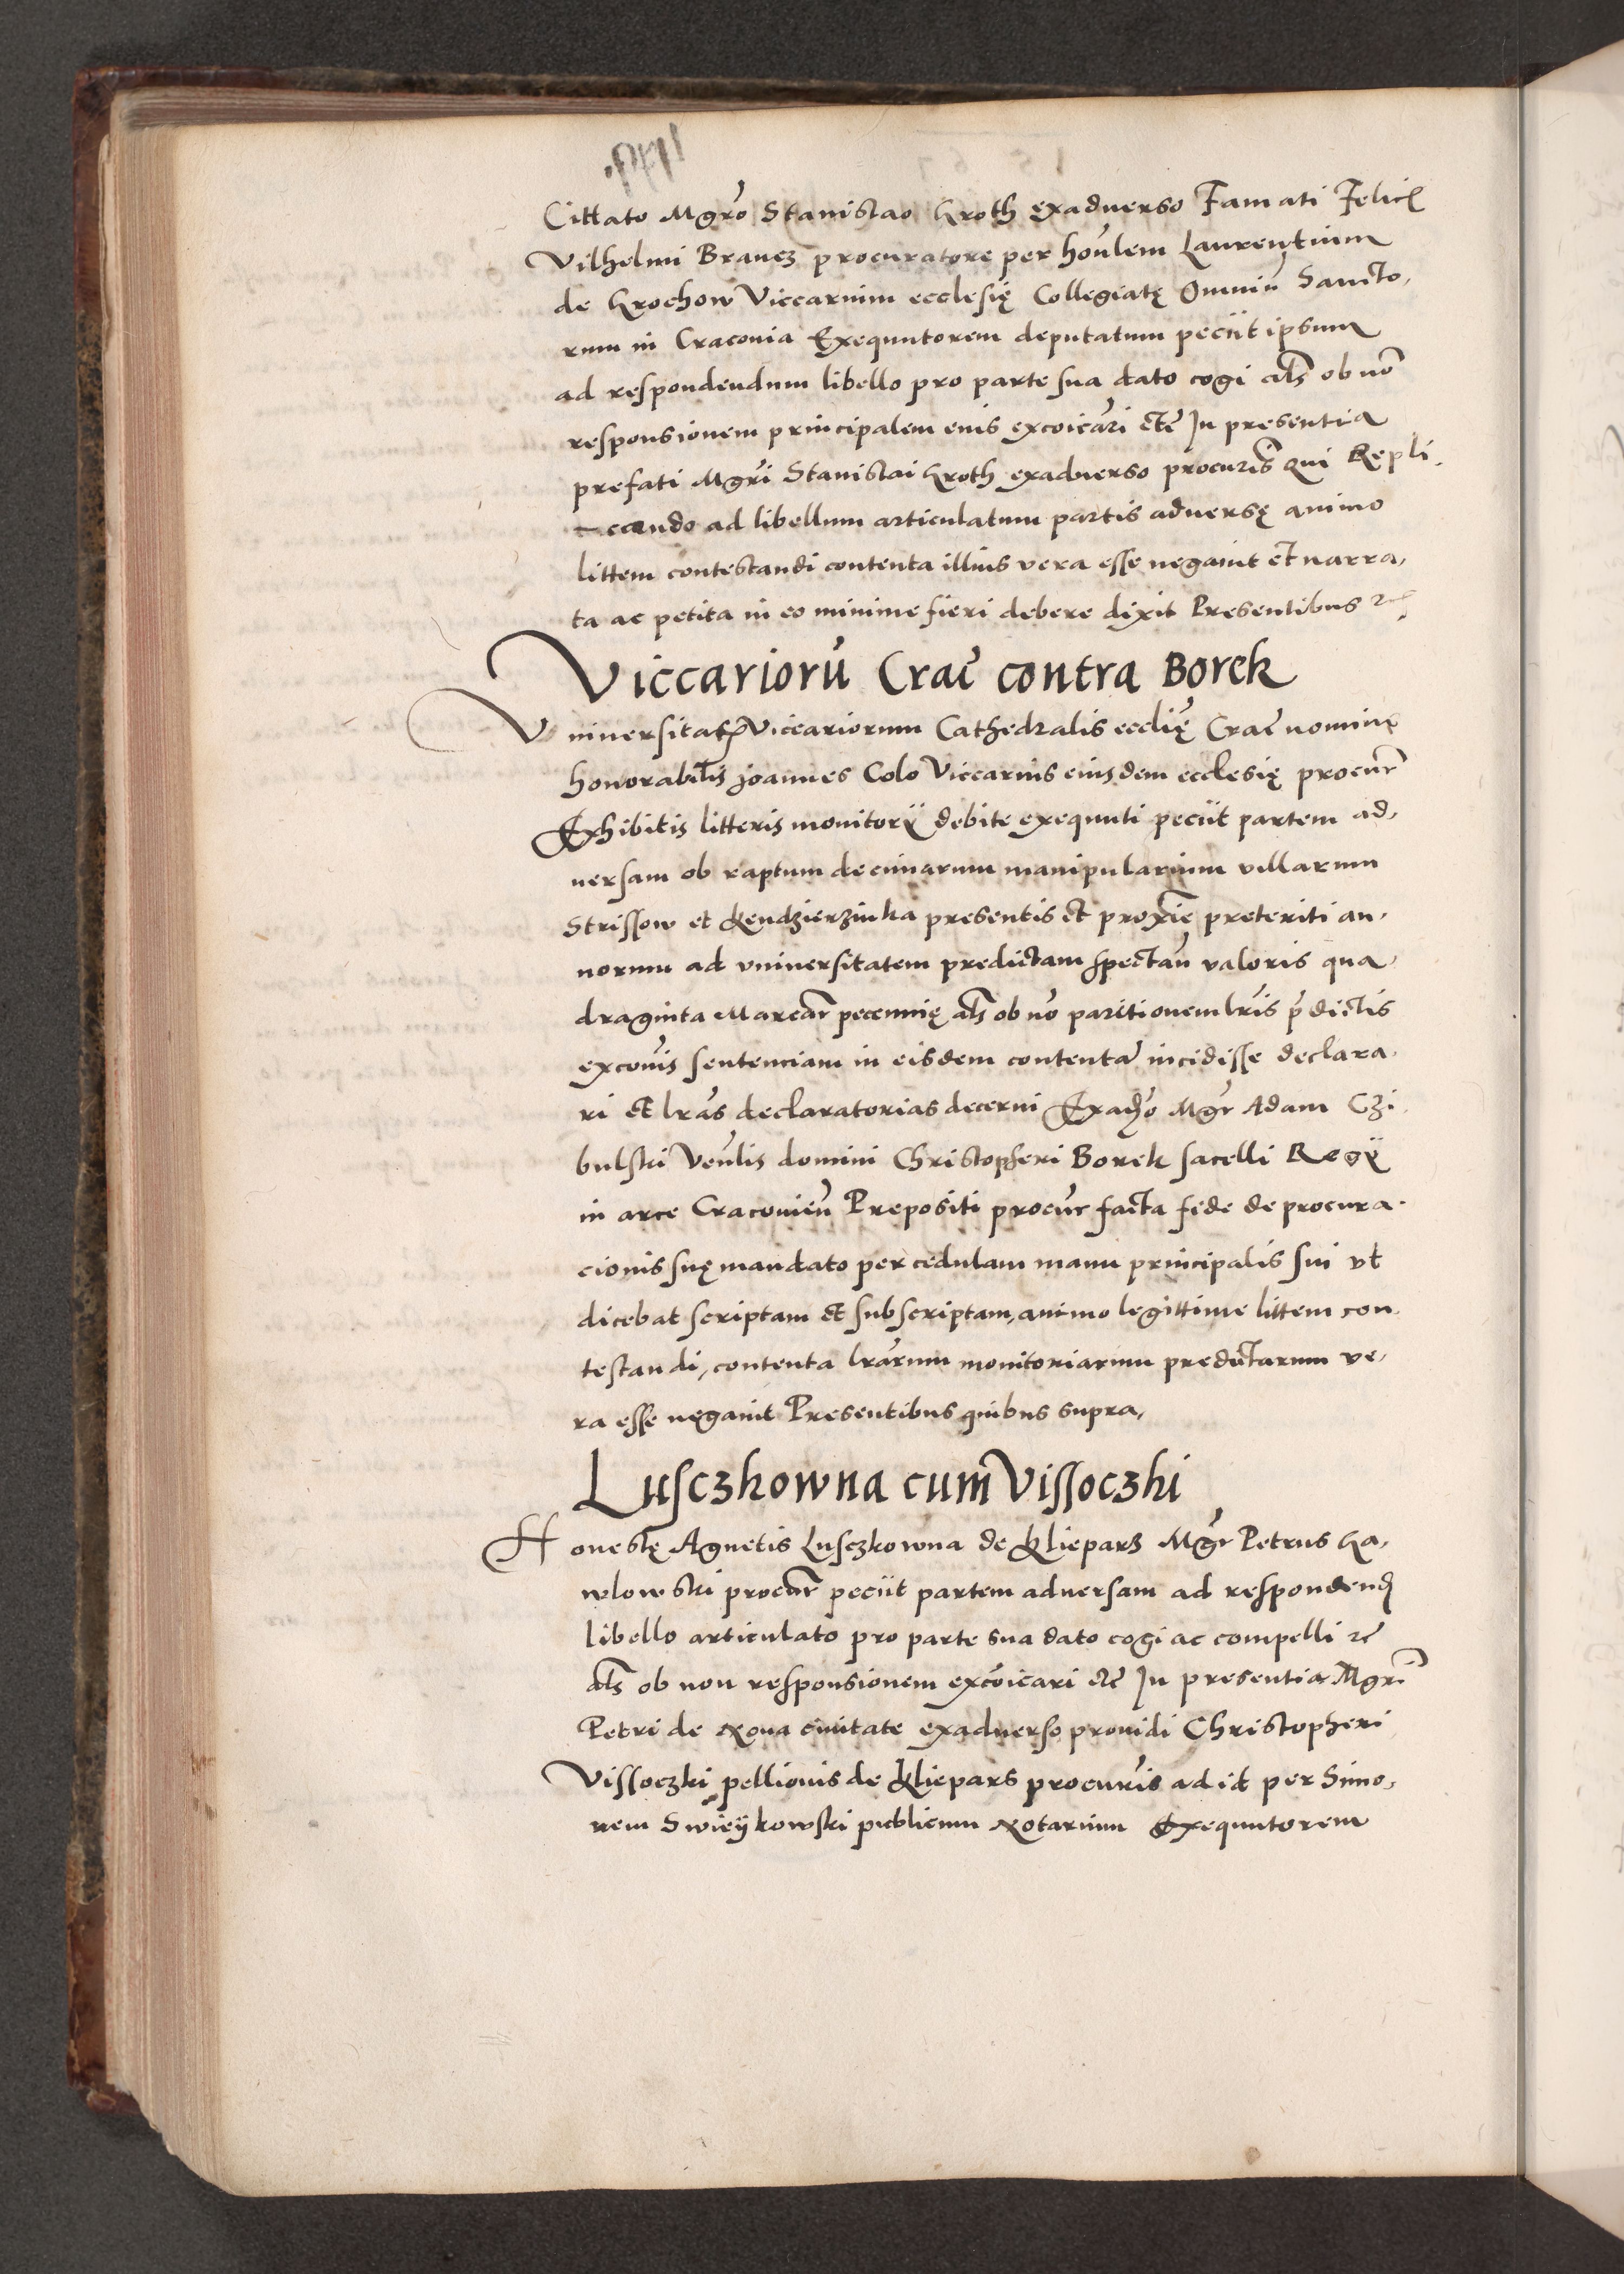 Cittato Mgro Stanislao Kroth exaduerso Famati Felicis
Vilhelmi Brauez procuratore per honlem Laurentium
de Krochow Viccarium ecclesię Collegiatę Omniū Sancto,
rum in Craconia Exequutorem deputatum peciit ipsum
ad respondendum libello pro parte sua dato cogi als ob nō
responsionem principalem eius excoicari etc In presentia
prefati Mgri Stanislai Kroth exaduerso procuris Qui Repli,
ccando ad libellum articulatum partis aduersę animo
littem contestandi contenta illius vera esse negauit et narra,
ta ac petita in eo minime fieri debere dixit Presentibus etc
Viccariorū Crac contra Borek
Vniuersitatis Viccariorum Cathedralis ecclię Crac nomine
honorabilis Joannes Colo Viccarius eiusdem ecclesię procur
Exhibitis litteris monitorÿ debite exequuti peciit partem ad,
uersam ob raptum decimarum manipularium villarum
Strissow et Kendzierzinka presentis et proxie preteriti an,
norum ad vniuersitatem predictam spectan valoris qua,
draginta Marcar peccunię als ob nō paritionem lris pdictis
excōnis sentenciam in eisdem contentā incidisse declara,
ri et lras declaratorias decerni Exadso Mgr Adam Czi,
bulski Venlis domini Christopheri Borek sacelli Regÿ
in arce Cracouien Prepositi procur facta fede de procura,
cionis suę mandato per cedulam manu principalis sui vt
dicebat scriptam et subscriptam, animo legittime littem con,
testandi, contenta lrarum monitoriarum predictarum ve,
ra esse negauit Presentibus quibus supra,
Lusczkowna cum Vissoczki
Honestę Agnetis Lusczkowna de Klieparz Mgr Petrus Ka,
wlowski procur peciit partem aduersam ad respondend
libello articulato pro parte sua dato cogi ac compelli etc
als ob non responsionem excōicari etc In presentia Mgri
Petri de Noua ciuitate exaduerso prouidi Christopheri
Vissoczki pellionis de Kliepars procuris ad id per Simo,
nem Swieÿkowski publicum Notarium Exequutorem